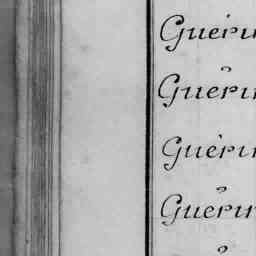 Guérin
Guérin
Guérin
Guérin